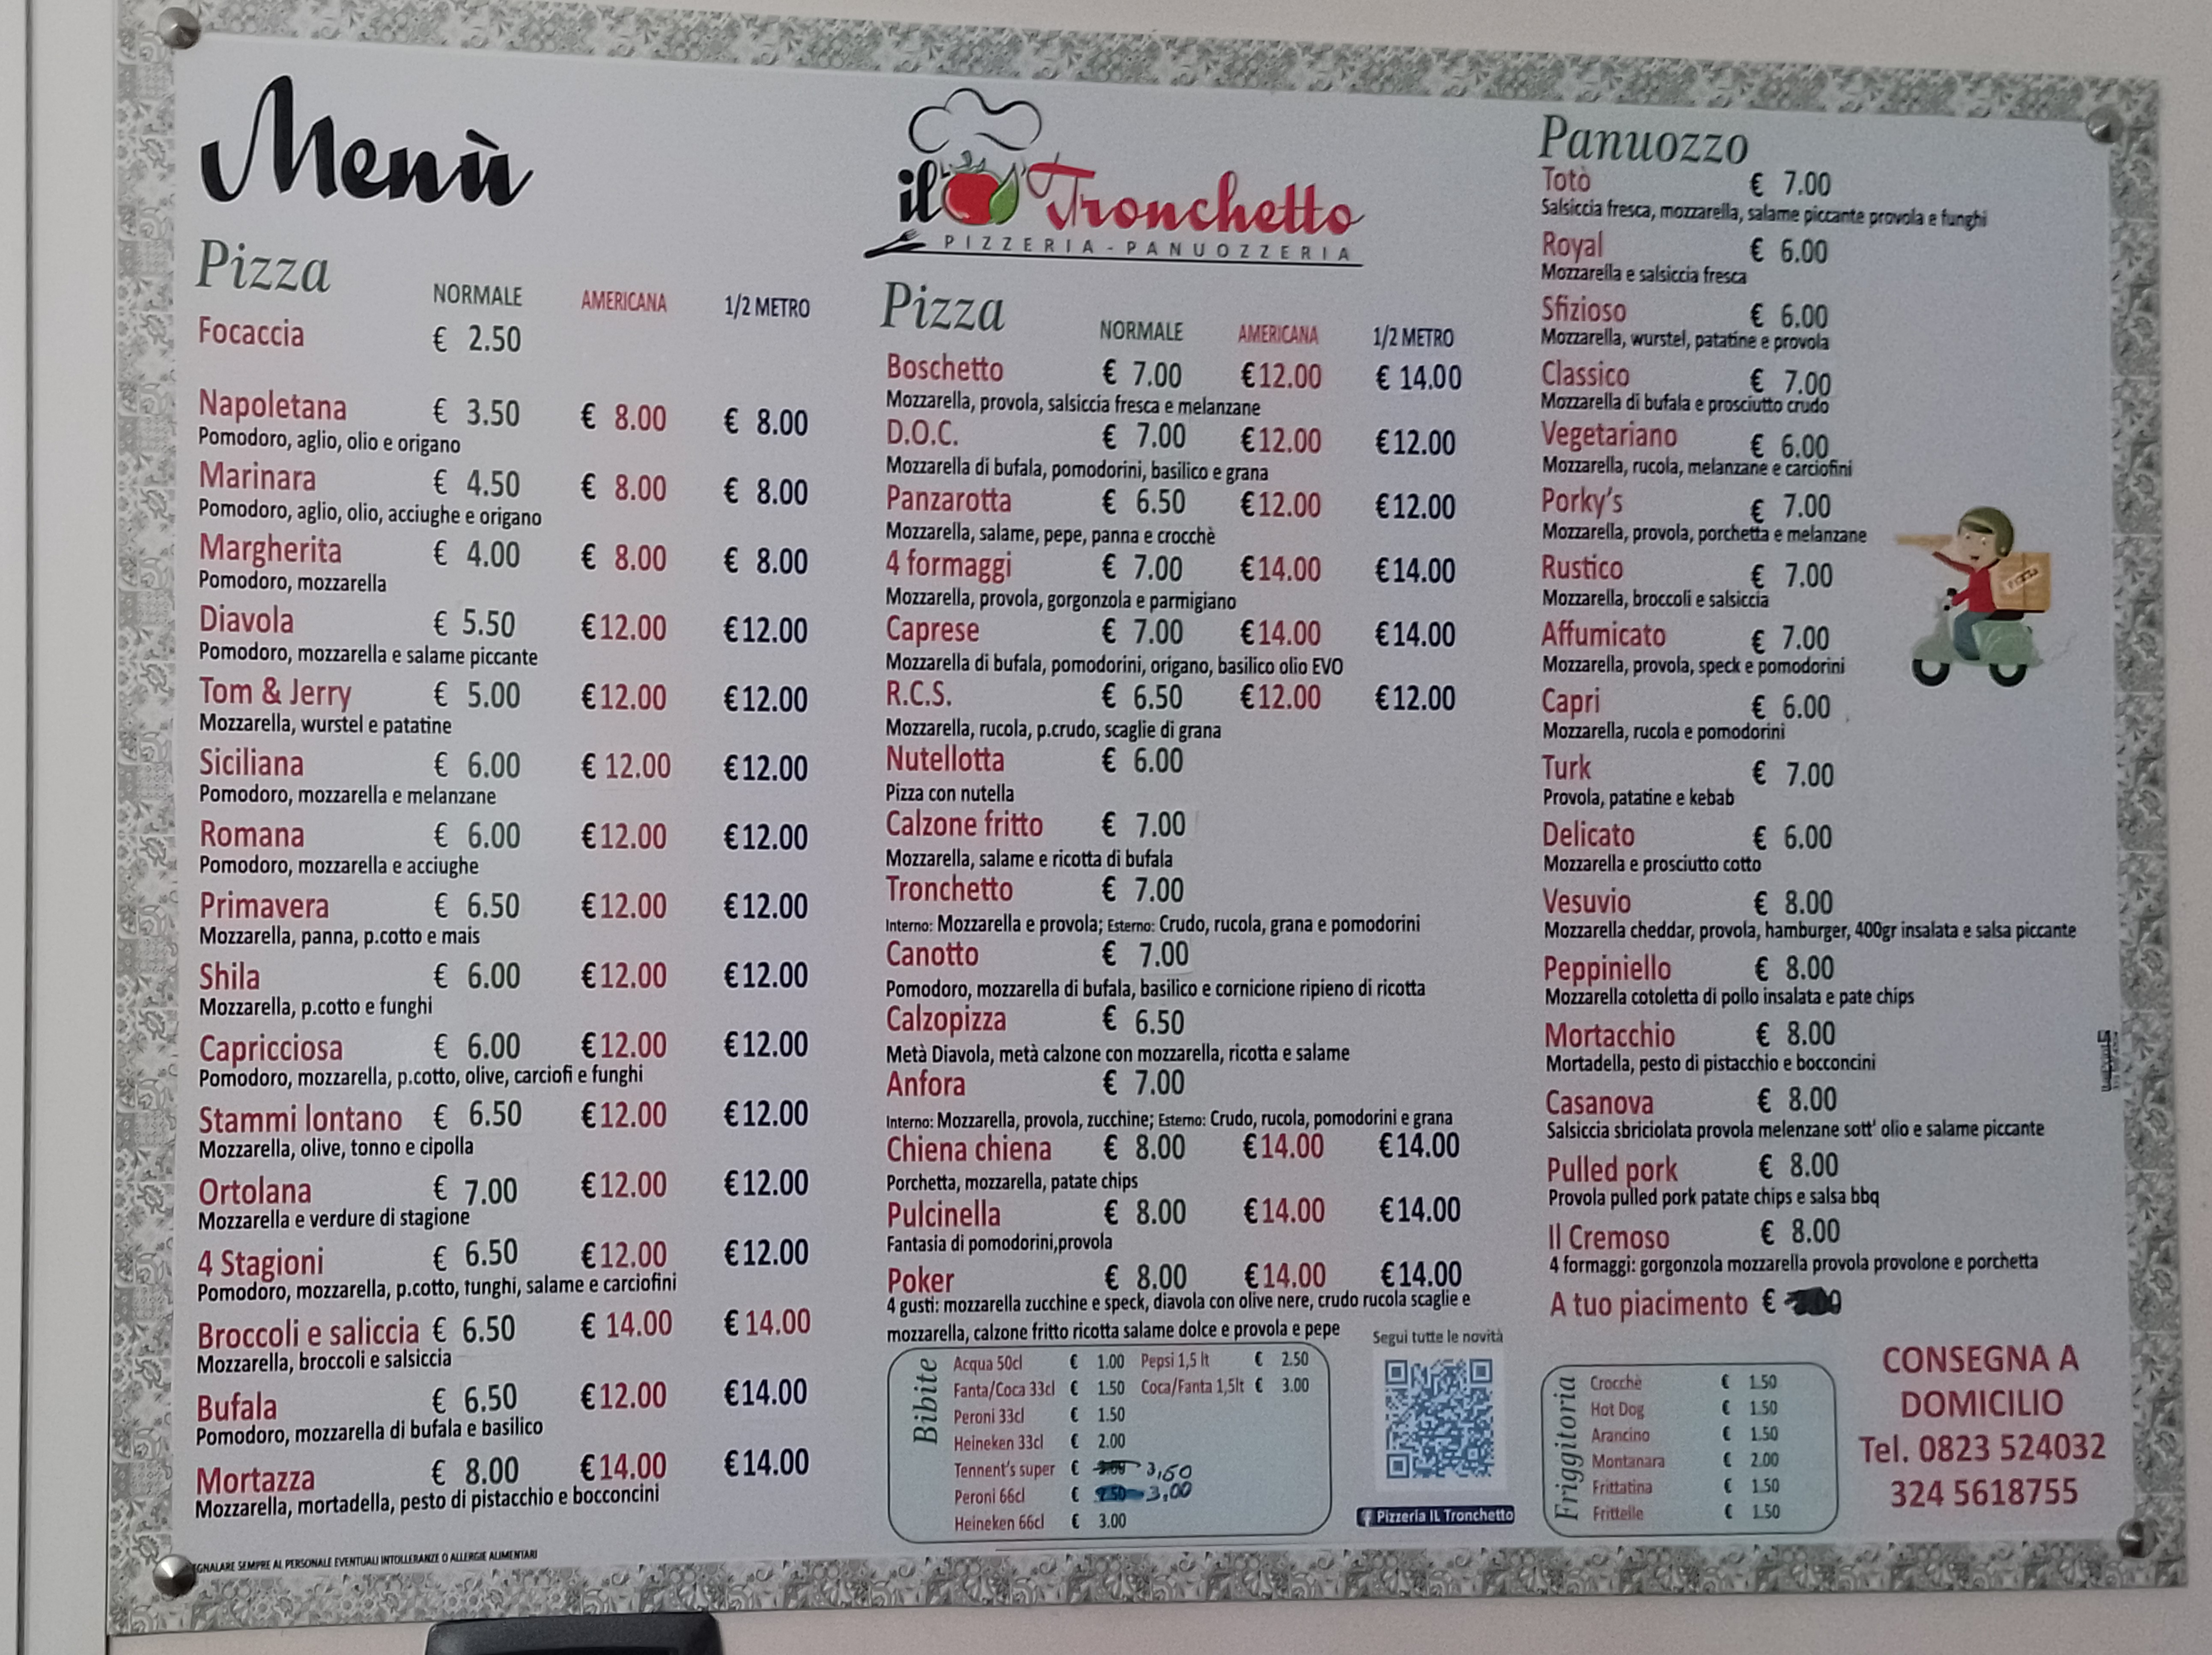 Menù
il Tronchetto
PIZZERIA - PANUOZZERIA
Pizza
NORMALE AMERICANA 1/2 METRO
Focaccia € 2.50
Napoletana € 3.50 € 8.00 € 8.00
Pomodoro, aglio, olio e origano
Marinara € 4.50 € 8.00 € 8.00
Pomodoro, aglio, olio, acciughe e origano
Margherita € 4.00 € 8.00 € 8.00
Pomodoro, mozzarella
Diavola € 5.50 €12.00 €12.00
Pomodoro, mozzarella e salame piccante
Tom & Jerry € 5.00 €12.00 €12.00
Mozzarella, wurstel e patatine
Siciliana € 6.00 € 12.00 €12.00
Pomodoro, mozzarella e melanzane
Romana € 6.00 €12.00 €12.00
Pomodoro, mozzarella e acciughe
Primavera € 6.50 €12.00 €12.00
Mozzarella, panna, p.cotto e mais
Shila € 6.00 €12.00 €12.00
Mozzarella, p.cotto e funghi
Capricciosa € 6.00 €12.00 €12.00
Pomodoro, mozzarella, p.cotto, olive, carciofi e funghi
Stammi lontano € 6.50 €12.00 €12.00
Mozzarella, olive, tonno e cipolla
Ortolana € 7.00 €12.00 €12.00
Mozzarella e verdure di stagione
4 Stagioni € 6.50 €12.00 €12.00
Pomodoro, mozzarella, p.cotto, funghi, salame e carciofini
Broccoli e saliccia € 6.50 € 14.00 € 14.00
Mozzarella, broccoli e salsiccia
Bufala € 6.50 €12.00 €14.00
Pomodoro, mozzarella di bufala e basilico
Mortazza € 8.00 €14.00 €14.00
Mozzarella, mortadella, pesto di pistacchio e bocconcini
SEGNALARE SEMPRE AL PERSONALE EVENTUALI INTOLLERANZE O ALLERGIE ALIMENTARI
Pizza
NORMALE AMERICANA 1/2 METRO
Boschetto € 7.00 €12.00 € 14.00
Mozzarella, provola, salsiccia fresca e melanzane
D.O.C. € 7.00 €12.00 €12.00
Mozzarella di bufala, pomodorini, basilico e grana
Panzarotta € 6.50 €12.00 €12.00
Mozzarella, salame, pepe, panna e crocchè
4 formaggi € 7.00 €14.00 €14.00
Mozzarella, provola, gorgonzola e parmigiano
Caprese € 7.00 €14.00 €14.00
Mozzarella di bufala, pomodorini, origano, basilico olio EVO
R.C.S. € 6.50 €12.00 €12.00
Mozzarella, rucola, p.crudo, scaglie di grana
Nutellotta € 6.00
Pizza con nutella
Calzone fritto € 7.00
Mozzarella, salame e ricotta di bufala
Tronchetto € 7.00
Interno: Mozzarella e provola; Esterno: Crudo, rucola, grana e pomodorini
Canotto € 7.00
Pomodoro, mozzarella di bufala, basilico e cornicione ripieno di ricotta
Calzopizza € 6.50
Metà Diavola, metà calzone con mozzarella, ricotta e salame
Anfora € 7.00
Interno: Mozzarella, provola, zucchine; Esterno: Crudo, rucola, pomodorini e grana
Chiena chiena € 8.00 €14.00 €14.00
Porchetta, mozzarella, patate chips
Pulcinella € 8.00 €14.00 €14.00
Fantasia di pomodorini,provola
Poker € 8.00 €14.00 €14.00
4 gusti: mozzarella zucchine e speck, diavola con olive nere, crudo rucola scaglie e
mozzarella, calzone fritto ricotta salame dolce e provola e pepe
Bibite
Acqua 50cl € 1.00 Pepsi 1,5 lt € 2.50
Fanta/Coca 33cl € 1.50 Coca/Fanta 1,5lt € 3.00
Peroni 33cl € 1.50
Heineken 33cl € 2.00
Tennent's super € 3,50
Peroni 66cl € 2.50 3,00
Heineken 66cl € 3.00
Segui tutte le novità
f Pizzeria IL Tronchetto
Panuozzo
Totò € 7.00
Salsiccia fresca, mozzarella, salame piccante provola e funghi
Royal € 6.00
Mozzarella e salsiccia fresca
Sfizioso € 6.00
Mozzarella, wurstel, patatine e provola
Classico € 7.00
Mozzarella di bufala e prosciutto crudo
Vegetariano € 6.00
Mozzarella, rucola, melanzane e carciofini
Porky's € 7.00
Mozzarella, provola, porchetta e melanzane
Rustico € 7.00
Mozzarella, broccoli e salsiccia
Affumicato € 7.00
Mozzarella, provola, speck e pomodorini
Capri € 6.00
Mozzarella, rucola e pomodorini
Turk € 7.00
Provola, patatine e kebab
Delicato € 6.00
Mozzarella e prosciutto cotto
Vesuvio € 8.00
Mozzarella cheddar, provola, hamburger, 400gr insalata e salsa piccante
Peppiniello € 8.00
Mozzarella cotoletta di pollo insalata e pate chips
Mortacchio € 8.00
Mortadella, pesto di pistacchio e bocconcini
Casanova € 8.00
Salsiccia sbriciolata provola melenzane sott' olio e salame piccante
Pulled pork € 8.00
Provola pulled pork patate chips e salsa bbq
Il Cremoso € 8.00
4 formaggi: gorgonzola mozzarella provola provolone e porchetta
A tuo piacimento €
Friggitoria
Crocchè € 1.50
Hot Dog € 1.50
Arancino € 1.50
Montanara € 2.00
Frittatina € 1.50
Frittelle € 1.50
CONSEGNA A
DOMICILIO
Tel. 0823 524032
324 5618755